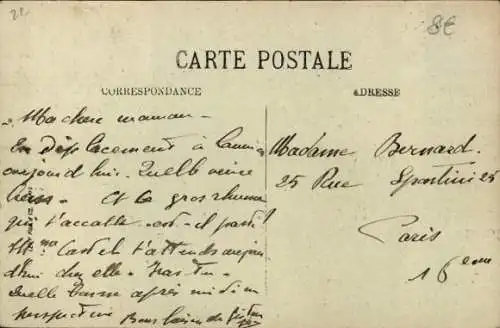 22
8€
CARTE POSTALE
CORRESPONDANCE
ADRESSE
Ma chère maman -
En déplacement à
aujourd'hui. Quelle veine
Et le gros rhume
qui t'accable - est-il passé ?
Mme Castel t'attends aujour
d'hui chez elle - Iras-tu -
Quelle bonne après midi en
perspective Bons baisers de
Madame Bernard.
25 Rue Spontini 25
Paris
16eme